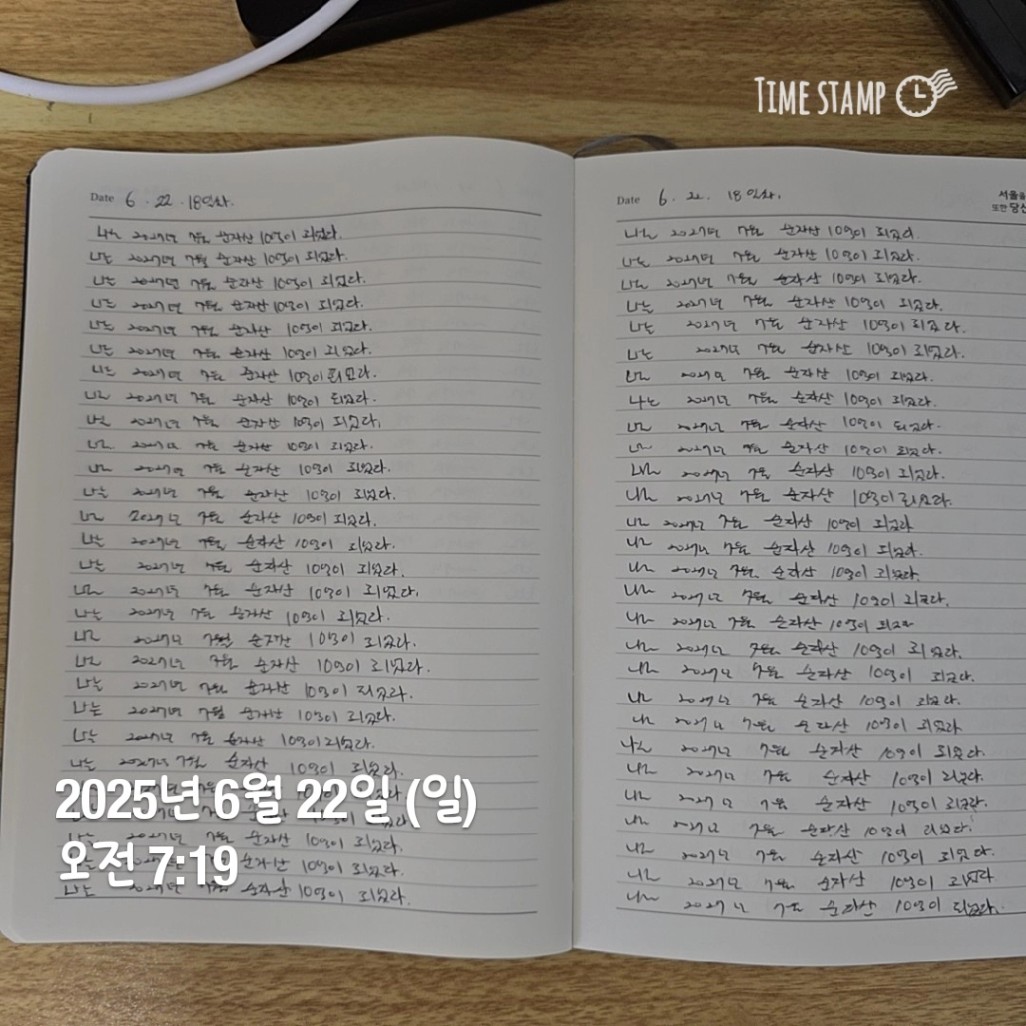 TIME STAMP
Date 6 . 22 . 18일차.
나는 2027년 7월 순자산 10억이 되었다.
나는 2027년 7월 순자산 10억이 되었다.
나는 2027년 7월 순자산 10억이 되었다.
나는 2027년 7월 순자산 10억이 되었다.
나는 2027년 7월 순자산 10억이 되었다.
나는 2027년 7월 순자산 10억이 되었다.
나는 2027년 7월 순자산 10억이 되었다.
나는 2027년 7월 순자산 10억이 되었다.
나는 2027년 7월 순자산 10억이 되었다.
나는 2027년 7월 순자산 10억이 되었다.
나는 2027년 7월 순자산 10억이 되었다.
나는 2027년 7월 순자산 10억이 되었다.
나는 2027년 7월 순자산 10억이 되었다.
나는 2027년 7월 순자산 10억이 되었다.
나는 2027년 7월 순자산 10억이 되었다.
나는 2027년 7월 순자산 10억이 되었다.
나는 2027년 7월 순자산 10억이 되었다.
나는 2027년 7월 순자산 10억이 되었다.
나는 2027년 7월 순자산 10억이 되었다.
나는 2027년 7월 순자산 10억이 되었다.
나는 2027년 7월 순자산 10억이 되었다.
나는 2027년 7월 순자산 10억이 되었다.
나는 2027년 7월 순자산 10억이 되었다.
10억이 되었다.
10억이 되었다.
나는 2027년 7월 순자산 10억이 되었다.
순자산 10억이 되었다.
나는 2027년 7월 순자산 10억이 되었다.
2025년 6월 22일 (일)
오전 7:19
Date 6 . 22. 18일차.
서울을
또한 당신
나는 2027년 7월 순자산 10억이 되었다.
나는 2027년 7월 순자산 10억이 되었다.
나는 2027년 7월 순자산 10억이 되었다.
나는 2027년 7월 순자산 10억이 되었다.
나는 2027년 7월 순자산 10억이 되었다.
나는 2027년 7월 순자산 10억이 되었다.
나는 2027년 7월 순자산 10억이 되었다.
나는 2027년 7월 순자산 10억이 되었다.
나는 2027년 7월 순자산 10억이 되었다.
나는 2027년 7월 순자산 10억이 되었다.
나는 2027년 7월 순자산 10억이 되었다.
나는 2027년 7월 순자산 10억이 되었다.
나는 2027년 7월 순자산 10억이 되었다
나는 2027년 7월 순자산 10억이 되었다.
나는 2027년 7월 순자산 10억이 되었다.
나는 2027년 7월 순자산 10억이 되었다.
나는 2027년 7월 순자산 10억이 되었다
나는 2027년 7월 순자산 10억이 되었다.
나는 2027년 7월 순자산 10억이 되었다.
나는 2027년 7월 순자산 10억이 되었다.
나는 2027년 7월 순자산 10억이 되었다
나는 2027년 7월 순자산 10억이 되었다.
나는 2027년 7월 순자산 10억이 되었다.
나는 2027년 7월 순자산 10억이 되었다.
나는 2027년 7월 순자산 10억이 되었다.
나는 2027년 7월 순자산 10억이 되었다.
나는 2027년 7월 순자산 10억이 되었다
나는 2027년 7월 순자산 10억이 되었다.